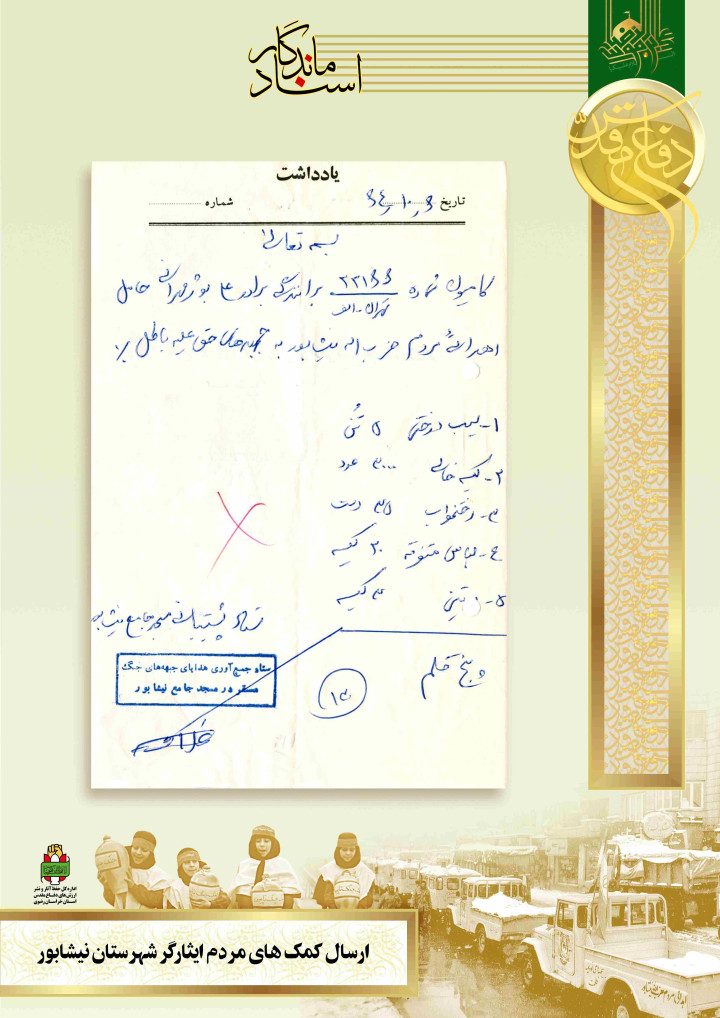 اسناد ماندگار
دفاع مقدس
یادداشت
تاریخ ۶۴٫۱۰٫۶ شماره
بسمه تعالی
کامیون شماره ۲۲۱۶۶ برانندگی برادر حامل
تهران - الف
اهدائی مردم حزب اله نیشابور به جبهه‌های حق علیه باطل
۱- سیب درختی ۵ تُن
۲- کیسه خالی ۳۰۰۰ عدد
۳- رختخواب ۳۵ دست
۴- لباس متفرقه ۲۰ کیسه
۵- کیسه
پنج قلم
۱۳
ستاد پشتیبانی مسجد جامع نیشابور
ستاد جمع‌آوری هدایای جبهه‌های جنگ
مستقر در مسجد جامع نیشابور
اداره کل حفظ آثار و نشر
ارزش های دفاع مقدس
استان خراسان رضوی
ارسال کمک های مردم ایثارگر شهرستان نیشابور